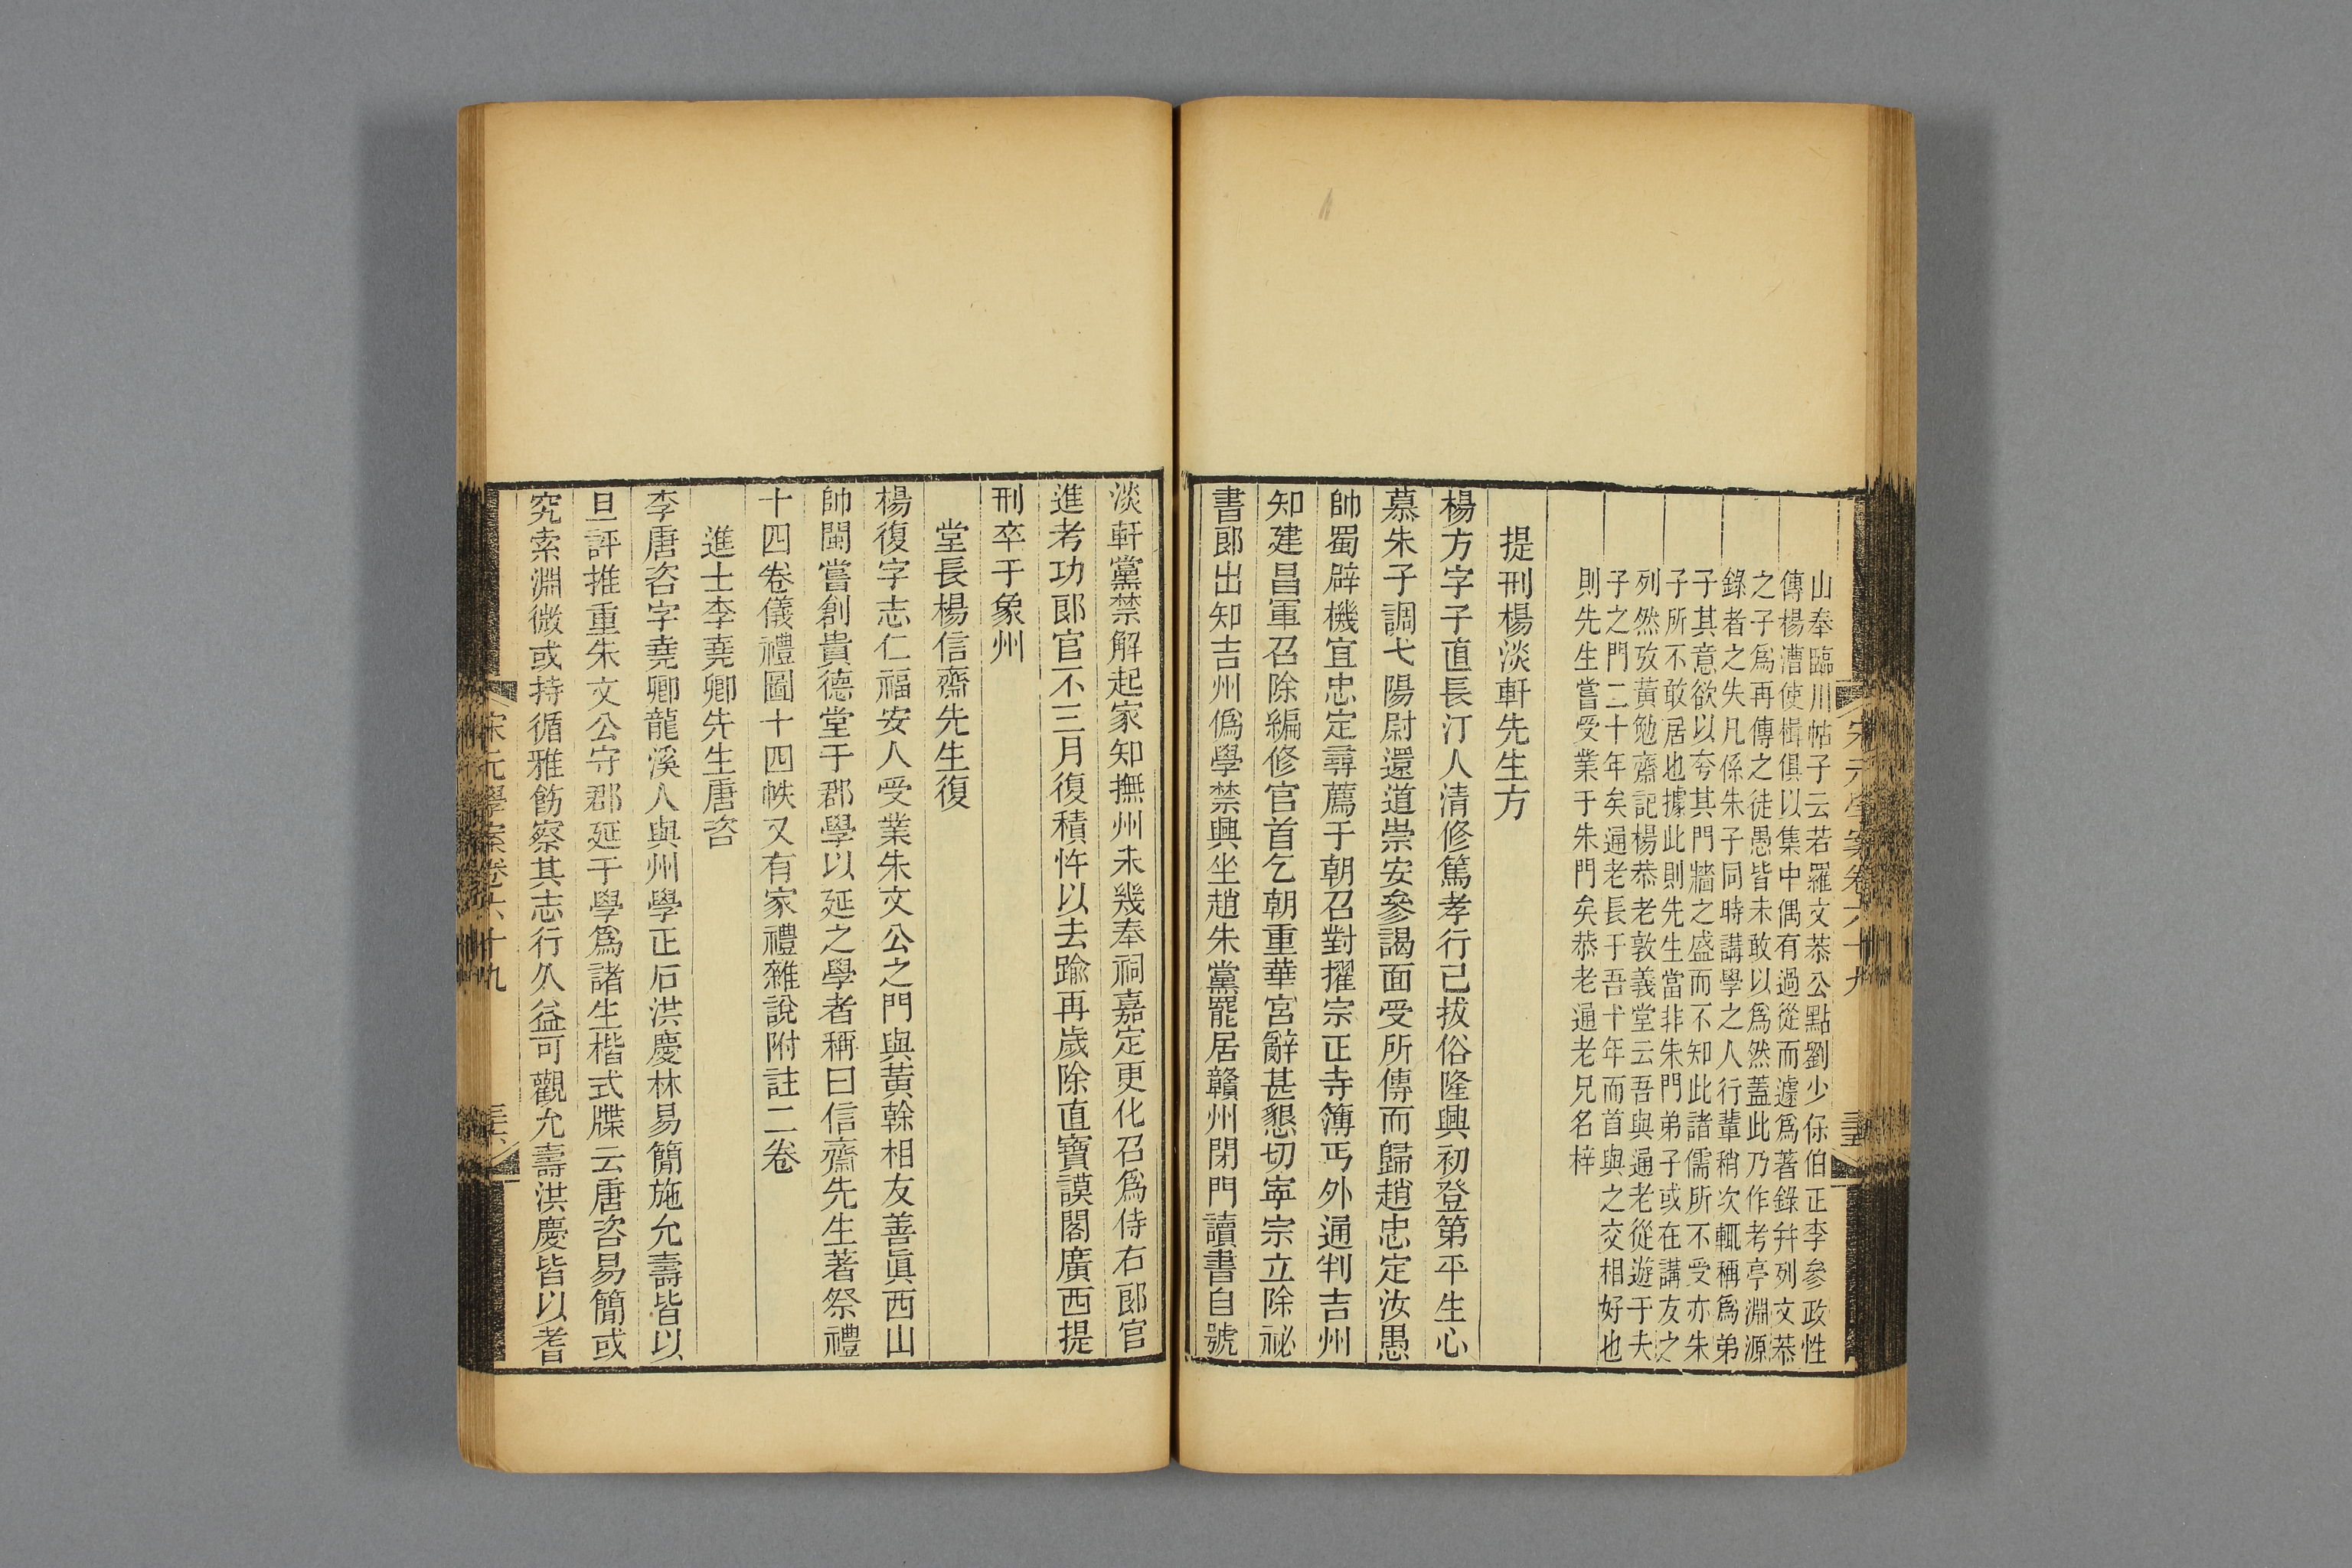 山奉臨川帖子云若羅文恭公點劉少保伯正李參政性
傳楊漕使楫俱以集中偶有過從而遽爲著錄幷列文恭
之子爲再傳之徒愚皆未敢以爲然蓋此乃作考亭淵源
錄者之失凡係朱子同時講學之人行輩稍次輒稱爲弟
子其意欲以夸其門牆之盛而不知此諸儒所不受亦朱
子所不敢居也據此則先生當非朱門弟子或在講友之
列然攷黃勉齋記楊恭老敦義堂云吾與通老從遊于夫
子之門二十年矣通老長于吾十年而首與之交相好也
則先生嘗受業于朱門矣恭老通老兄名梓
提刑楊淡軒先生方
楊方字子直長汀人清修篤孝行己拔俗隆興初登第平生心
慕朱子調弋陽尉還道崇安參謁面受所傳而歸趙忠定汝愚
帥蜀辟機宜忠定尋薦于朝召對擢宗正寺簿丐外通判吉州
知建昌軍召除編修官首乞朝重華宮辭甚懇切寧宗立除祕
書郎出知吉州僞學禁興坐趙朱黨罷居贛州閉門讀書自號
淡軒黨禁解起家知撫州未幾奉祠嘉定更化召爲侍右郎官
進考功郎官不三月復積忤以去踰再歲除直寶謨閣廣西提
刑卒于象州
堂長楊信齋先生復
楊復字志仁福安人受業朱文公之門與黃榦相友善眞西山
帥閩嘗創貴德堂于郡學以延之學者稱曰信齋先生著祭禮
十四卷儀禮圖十四帙又有家禮雜說附註二卷
進士李堯卿先生唐咨
李唐咨字堯卿龍溪人與州學正石洪慶林易簡施允壽皆以
旦評推重朱文公守郡延于學爲諸生楷式牒云唐咨易簡或
究索淵微或持循雅飭察其志行久益可觀允壽洪慶皆以耆
宋元學案卷六十九